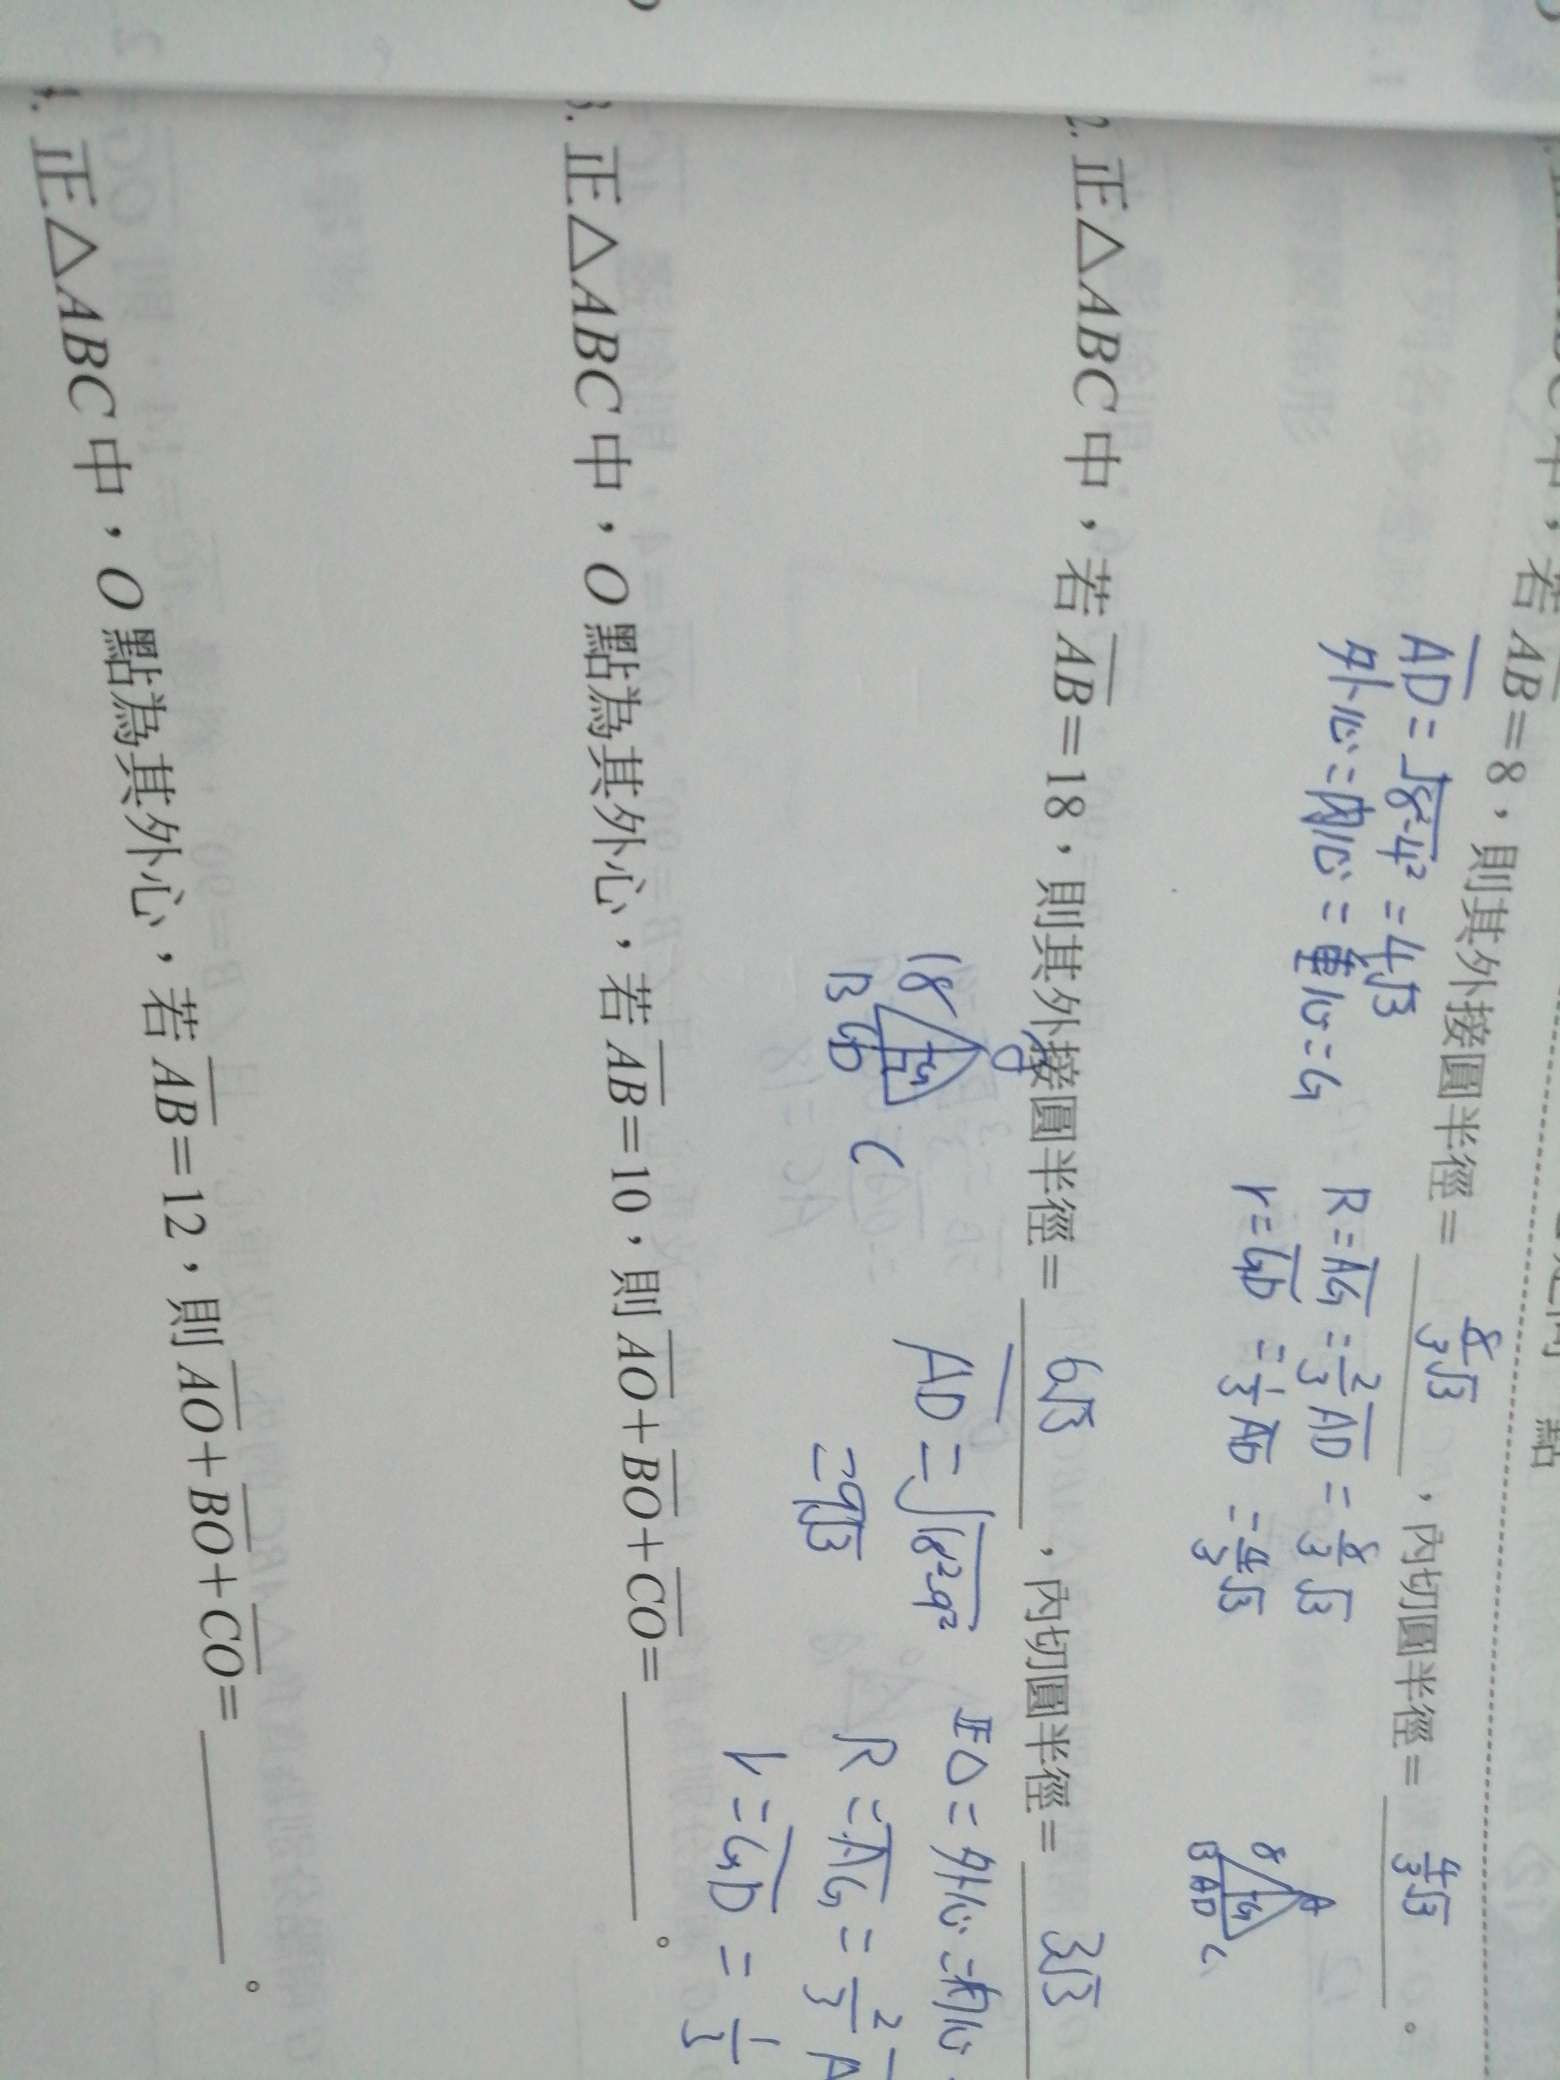 若 AB=8,則其外接圓半徑= 8/3√3 ,內切圓半徑= 4/3√3 。
AD=√8²-4² =4√3
外心=內心=重心=G
R=AG=2/3AD=8/3√3
r=GD=1/3AD=4/3√3
8 A
B D C
G
2. 正△ABC中,若 AB=18,則其外接圓半徑= 6√3 ,內切圓半徑= 3√3
18
B D C
G
AD=√18²-9²
=9√3
正△=外心=內心
R=AG=2/3A
r=GD=1/3
3. 正△ABC中,O點為其外心,若 AB=10,則 AO+BO+CO= 。
4. 正△ABC中,O點為其外心,若 AB=12,則 AO+BO+CO= 。